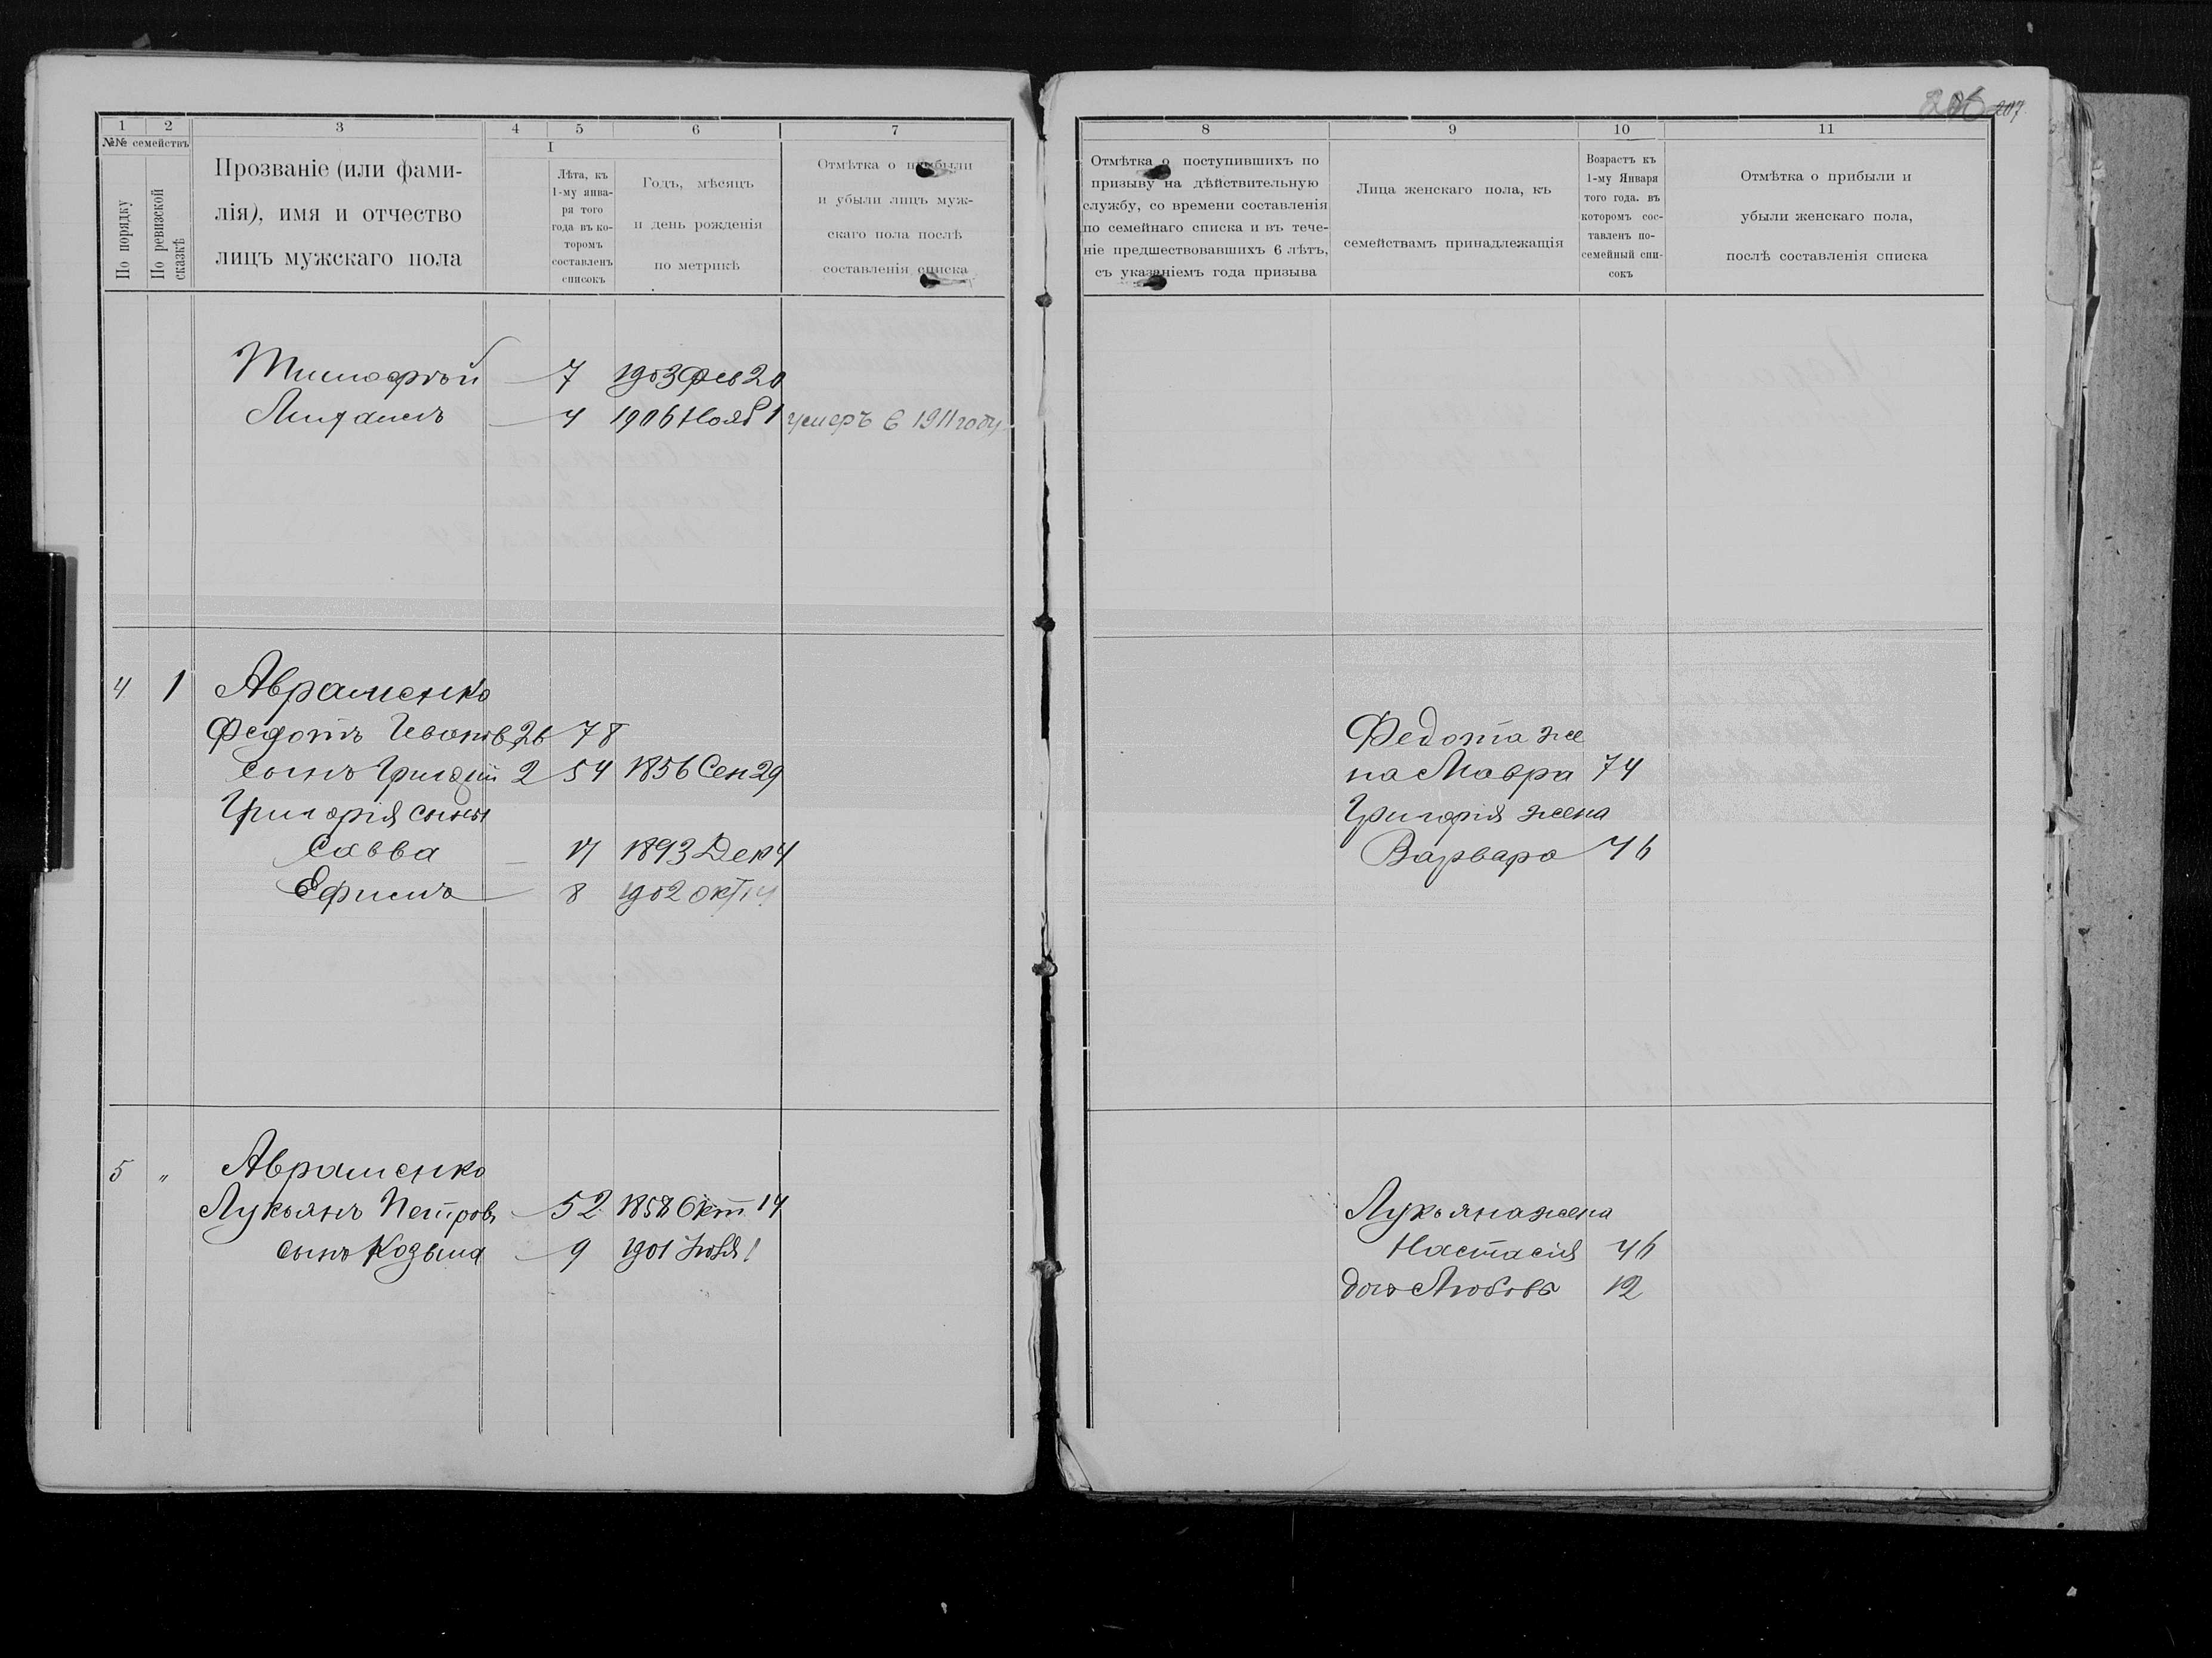 206 207
1 2 3 4 5 6 7
№№ семействъ
По порядку
По ревизской сказкѣ
Прозваніе (или фами-
лія), имя и отчество
лицъ мужскаго пола
I
Лѣта, къ
1-му янва-
ря того
года въ ко-
торомъ
составленъ
списокъ
Годъ, мѣсяцъ
и день рожденія
по метрикѣ
Отмѣтка о прибыли
и убыли лицъ муж-
скаго пола послѣ
составленія списка
Тимофѣй — 7 1903 Фев 20
— 4 1906 Нояб 1 умеръ в 1911 году
4 1 Авраменко
Федотъ Иванов 26 78
сынъ Григорій 2 54 1856 Сен 29
Григорія сыны
Савва — 17 1893 Дек 4
Ефимъ — 8 1902 окт 14
5 „ Авраменко
Лукьянъ Петров — 52 1858 Окт 14
сынъ Козьма — 9 1901 1
8 9 10 11
Отмѣтка о поступившихъ по
призыву на дѣйствительную
службу, со времени составленія
по семейнаго списка и въ тече-
ніе предшествовавшихъ 6 лѣтъ,
съ указаніемъ года призыва
Лица женскаго пола, къ
семействамъ принадлежащія
Возрастъ къ
1-му Января
того года. въ
которомъ сос-
тавленъ по-
семейный спи-
сокъ
Отмѣтка о прибыли и
убыли женскаго пола,
послѣ составленія списка
Федота же
на Мавра 74
Григорія жена
Варвара 46
Лукьяна жена
Настасія 46
дочь Любовь 12